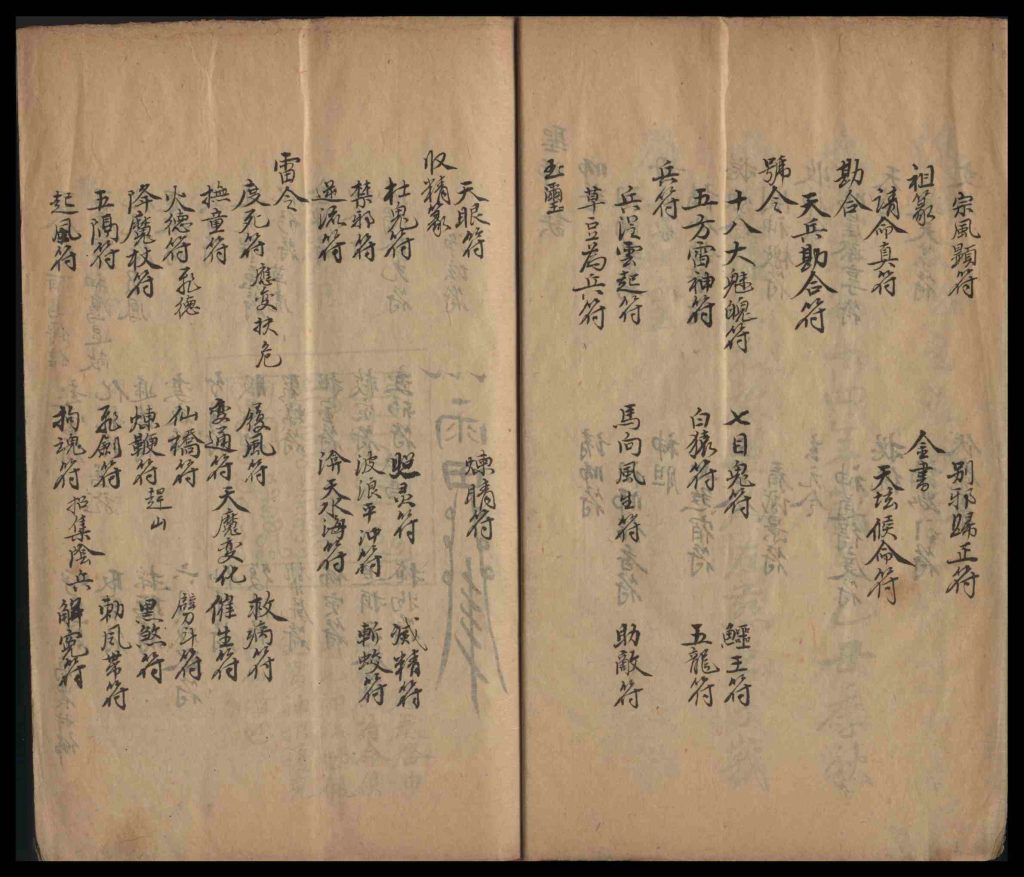 宗風顯符 別邪歸正符
祖篆 金書
請命真符 天坛候命符
勘合
天兵勘合符
號令
十八大魁魄符 七目鬼符 鱷王符
五方雷神符 白猿符 五龍符
兵符
兵浸雲起符 馬向風生符 助敵符
草豆為兵符
玉璽
天眼符 煉睛符
收精篆
杜鬼符 照灵符 滅精符
禁邪符 波浪平沖符 斬蛟符
逆流符 濟天水海符
雷令
度死符 應变扶危 履風符 救病符
撫童符 变通符 天魔变化 催生符
火德符 飛德 仙橋符 劈斗符
降魔杖符 煉鞭符 趕山 黑煞符
五隔符 飛劍符 勅風帶符
起風符 拘魂符 招集陰兵 解冤符